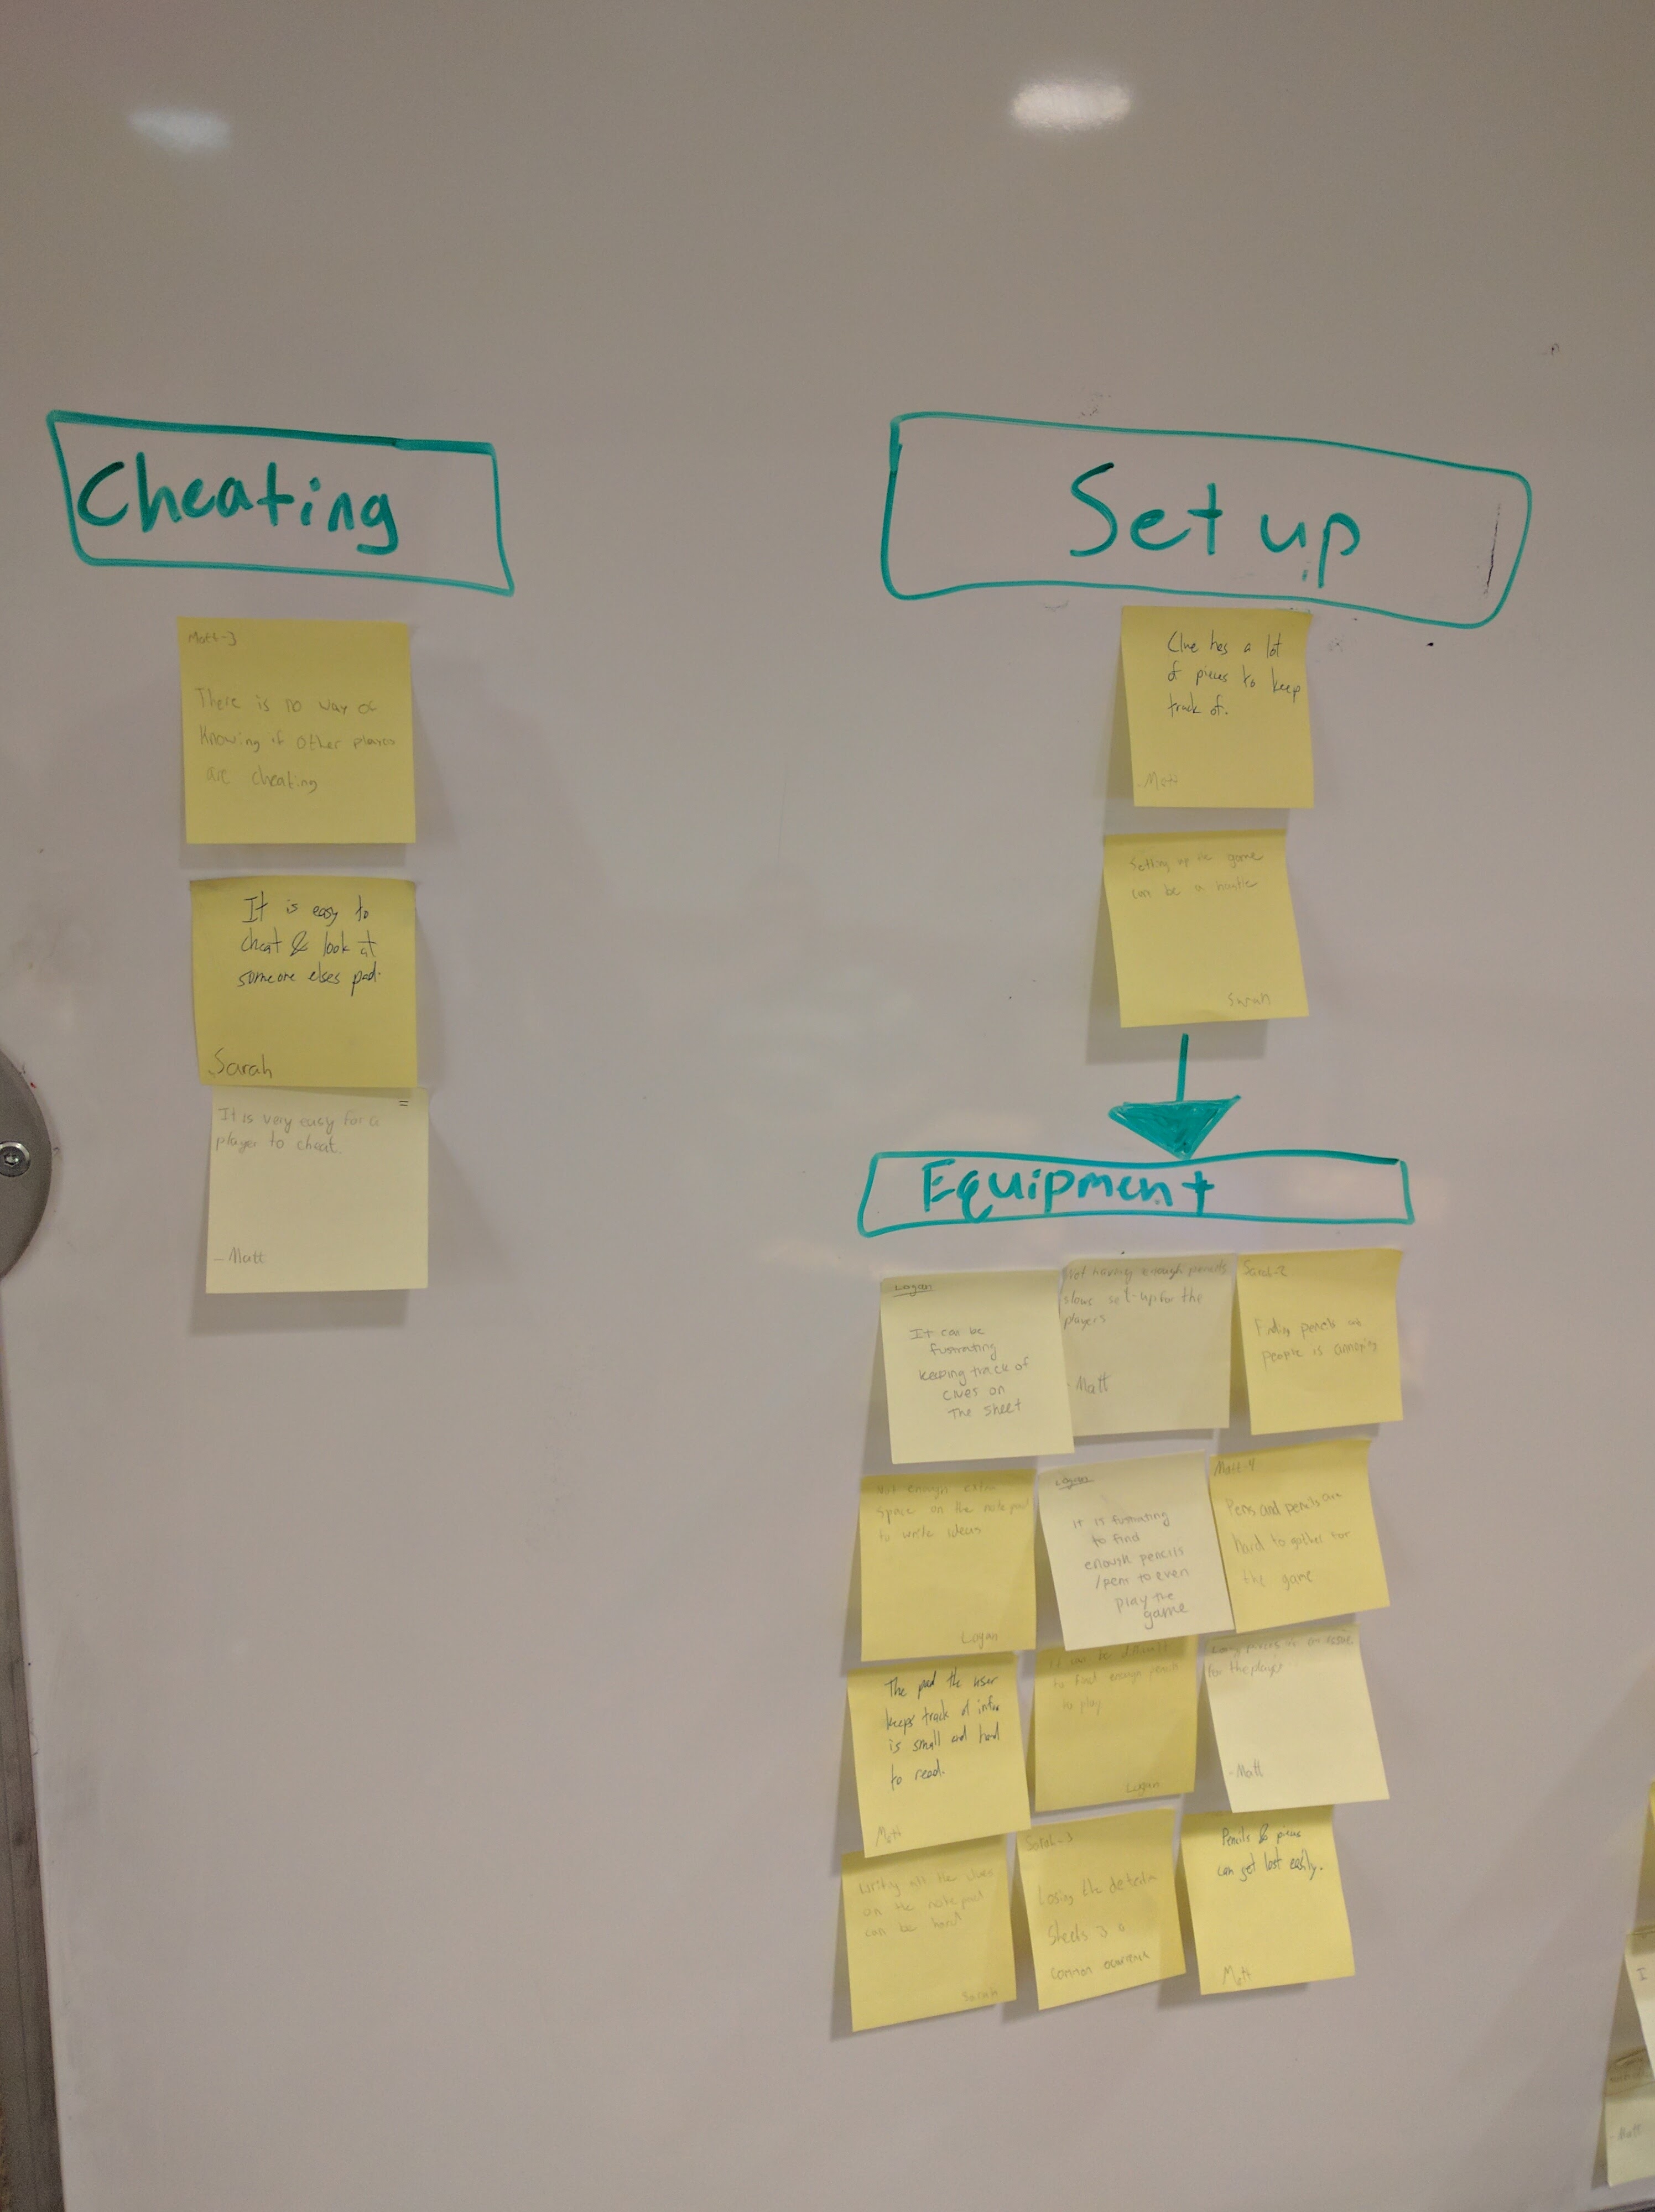 Cheating
Matt-3
There is no way of
Knowing if other players
are cheating
It is easy to
cheat & look at
someone elses pad.
Sarah
=
It is very easy for a
player to cheat.
-Matt
Set up
Clue has a lot
of pieces to keep
track of.
-Matt
Setting up the game
can be a hustle
Sarah
Equipment
Logan
It can be
fustrating
keeping track of
clues on
The sheet
Not having enough pencils
slows set-up for the
players
-Matt
Sarah-2
Finding pencils
people is annoying
Not enough extra
space on the notepad
to write ideas
Logan
Logan
it is fustrating
to find
enough pencils
/pens to even
play the
game
Matt-4
Pens and pencils are
hard to gather for
the game
The pad the user
keeps track of info
is small and hard
to read.
Matt
it can be difficult
to find enough pencils
to play
Logan
pieces is an issue
for the player
-Matt
writing all the clues
on the notepad
can be hard
Sarah
Sarah-3
Losing the detective
Sheets
common
Pencils & pieces
can get lost easily.
Matt
I
-Matt